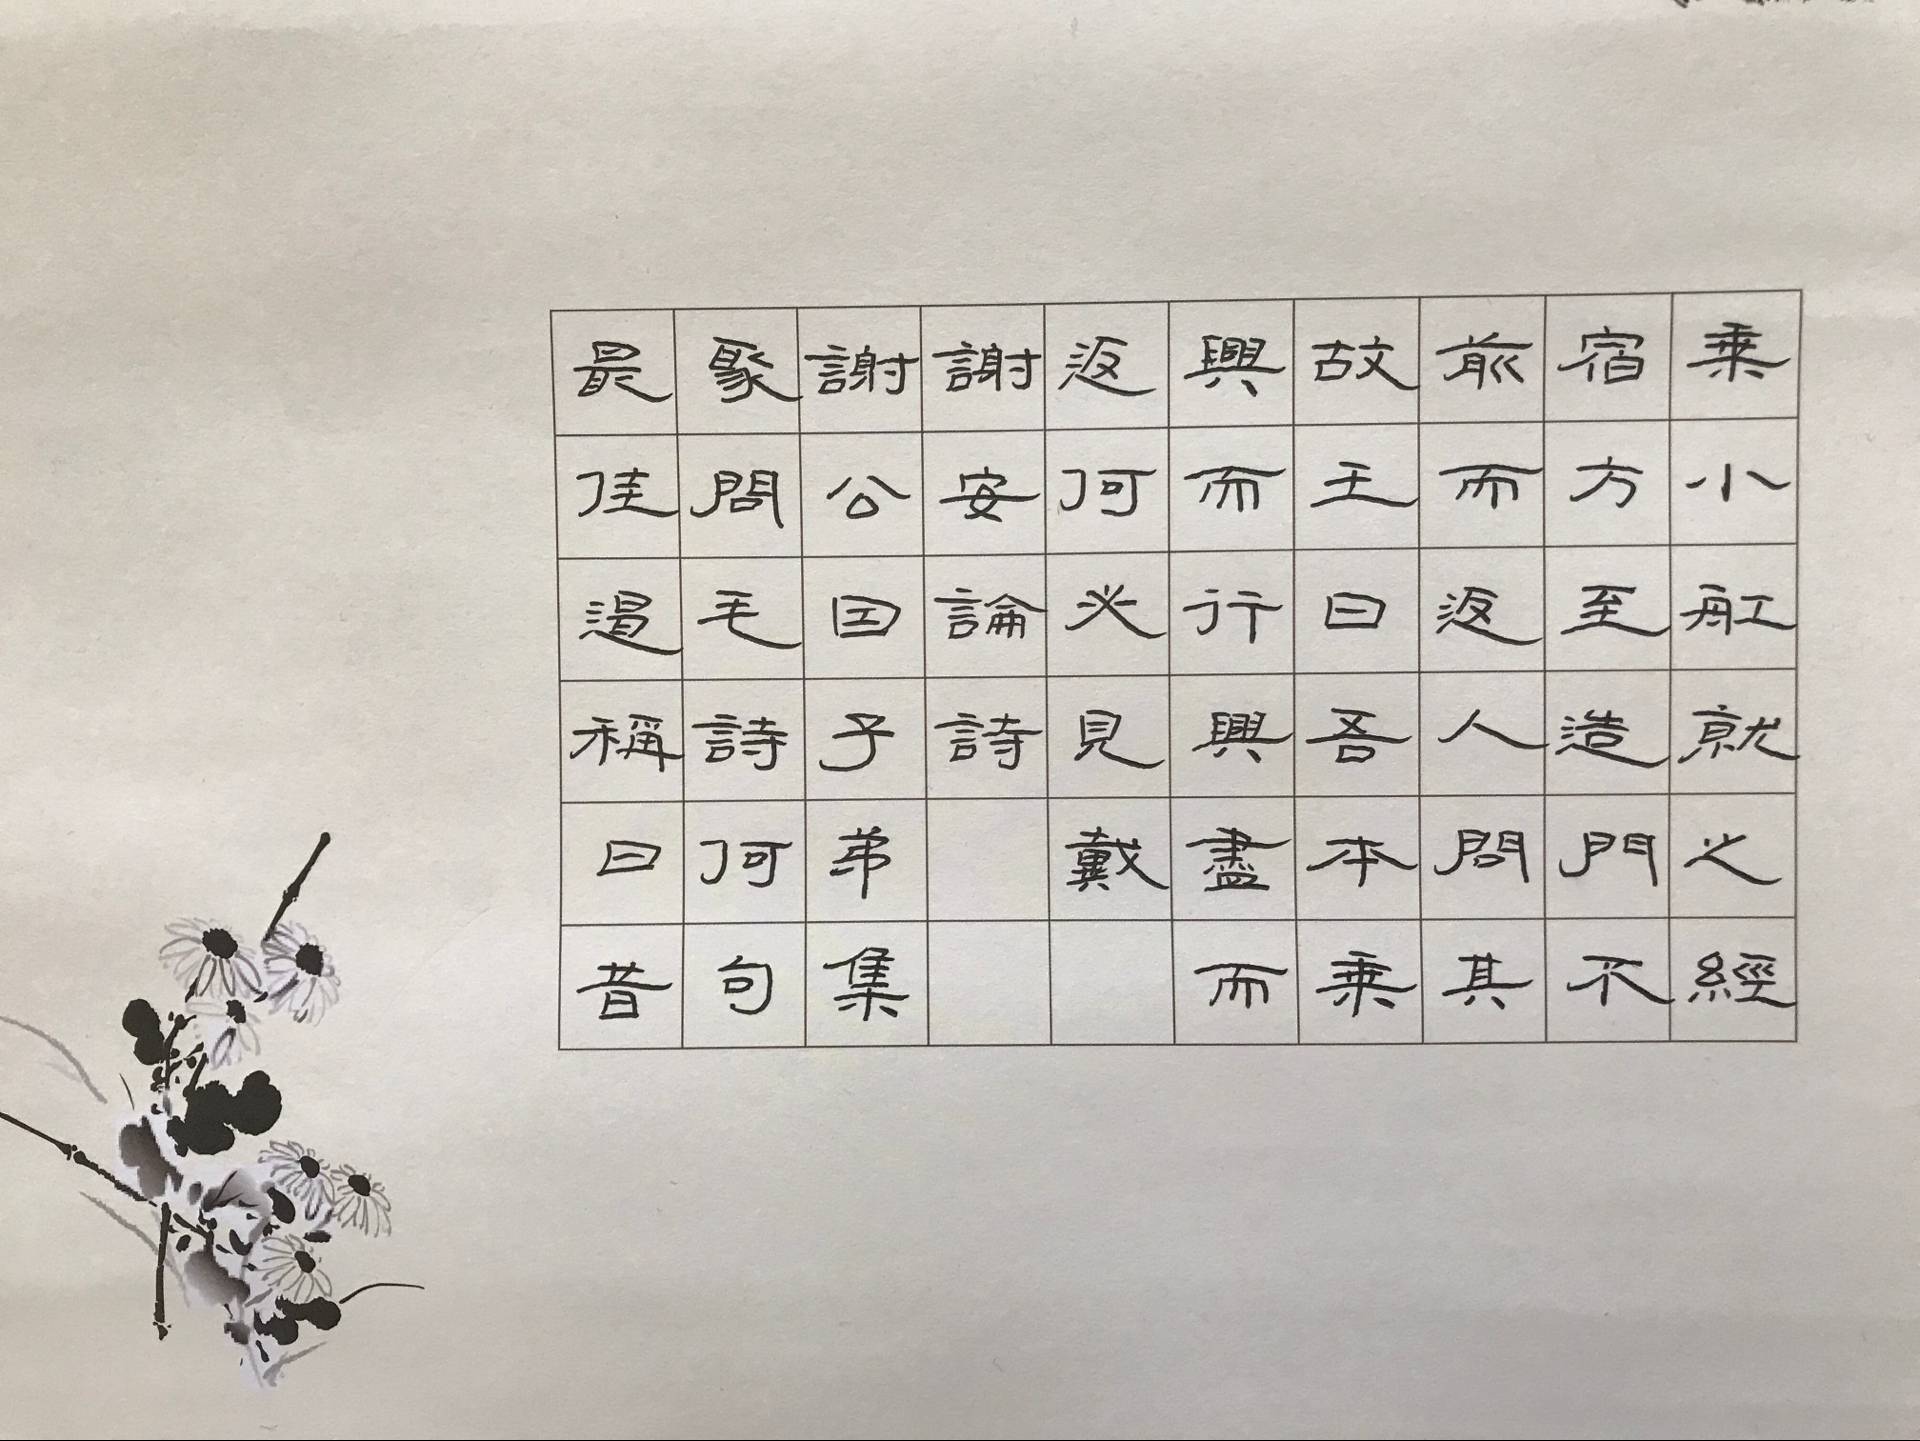 乘小舡就之經
宿方至造門不
前而返人問其
故王曰吾本乘
興而行興盡而
返何必見戴
謝安論詩
謝公因子弟集
聚問毛詩何句
最佳遏稱曰昔